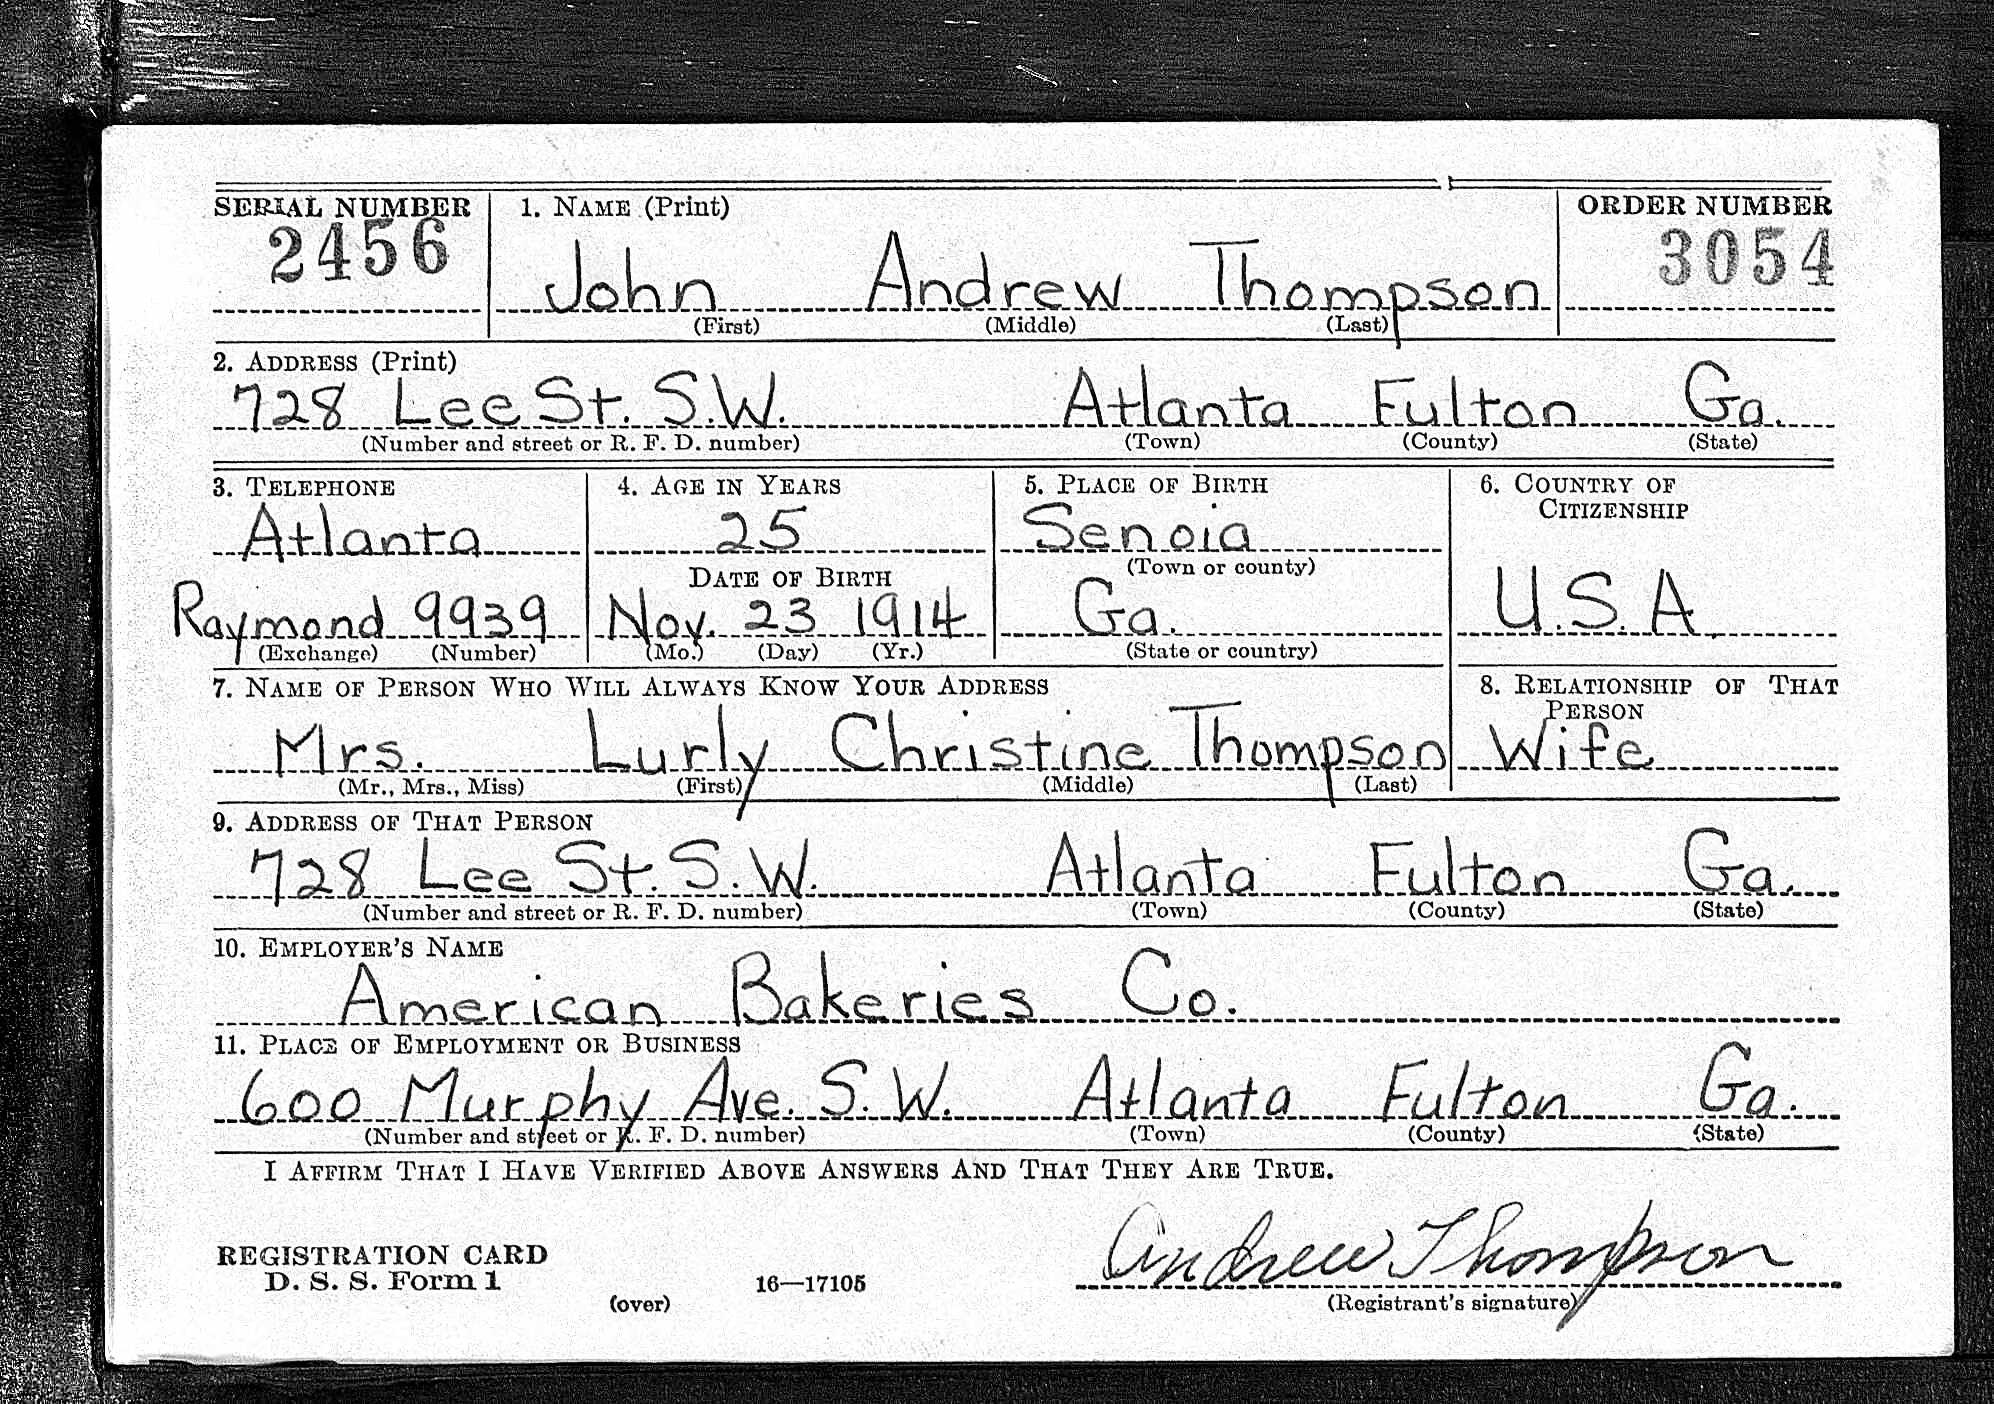 SERIAL NUMBER 1. NAME (Print) ORDER NUMBER
2456 John Andrew Thompson 3054
(First) (Middle) (Last)
2. ADDRESS (Print)
728 Lee St. S.W. Atlanta Fulton Ga.
(Number and street or R. F. D. number) (Town) (County) (State)
3. TELEPHONE 4. AGE IN YEARS 5. PLACE OF BIRTH 6. COUNTRY OF
CITIZENSHIP
Atlanta 25 Senoia
DATE OF BIRTH (Town or county)
Raymond 9939 Nov. 23 1914 Ga. U.S.A.
(Exchange) (Number) (Mo.) (Day) (Yr.) (State or country)
7. NAME OF PERSON WHO WILL ALWAYS KNOW YOUR ADDRESS 8. RELATIONSHIP OF THAT
PERSON
Mrs. Lurly Christine Thompson Wife
(Mr., Mrs., Miss) (First) (Middle) (Last)
9. ADDRESS OF THAT PERSON
728 Lee St. S.W. Atlanta Fulton Ga.
(Number and street or R. F. D. number) (Town) (County) (State)
10. EMPLOYER'S NAME
American Bakeries Co.
11. PLACE OF EMPLOYMENT OR BUSINESS
600 Murphy Ave. S.W. Atlanta Fulton Ga.
(Number and street or R. F. D. number) (Town) (County) (State)
I AFFIRM THAT I HAVE VERIFIED ABOVE ANSWERS AND THAT THEY ARE TRUE.
Andrew Thompson
REGISTRATION CARD
D. S. S. Form 1 16—17105
(over) (Registrant's signature)